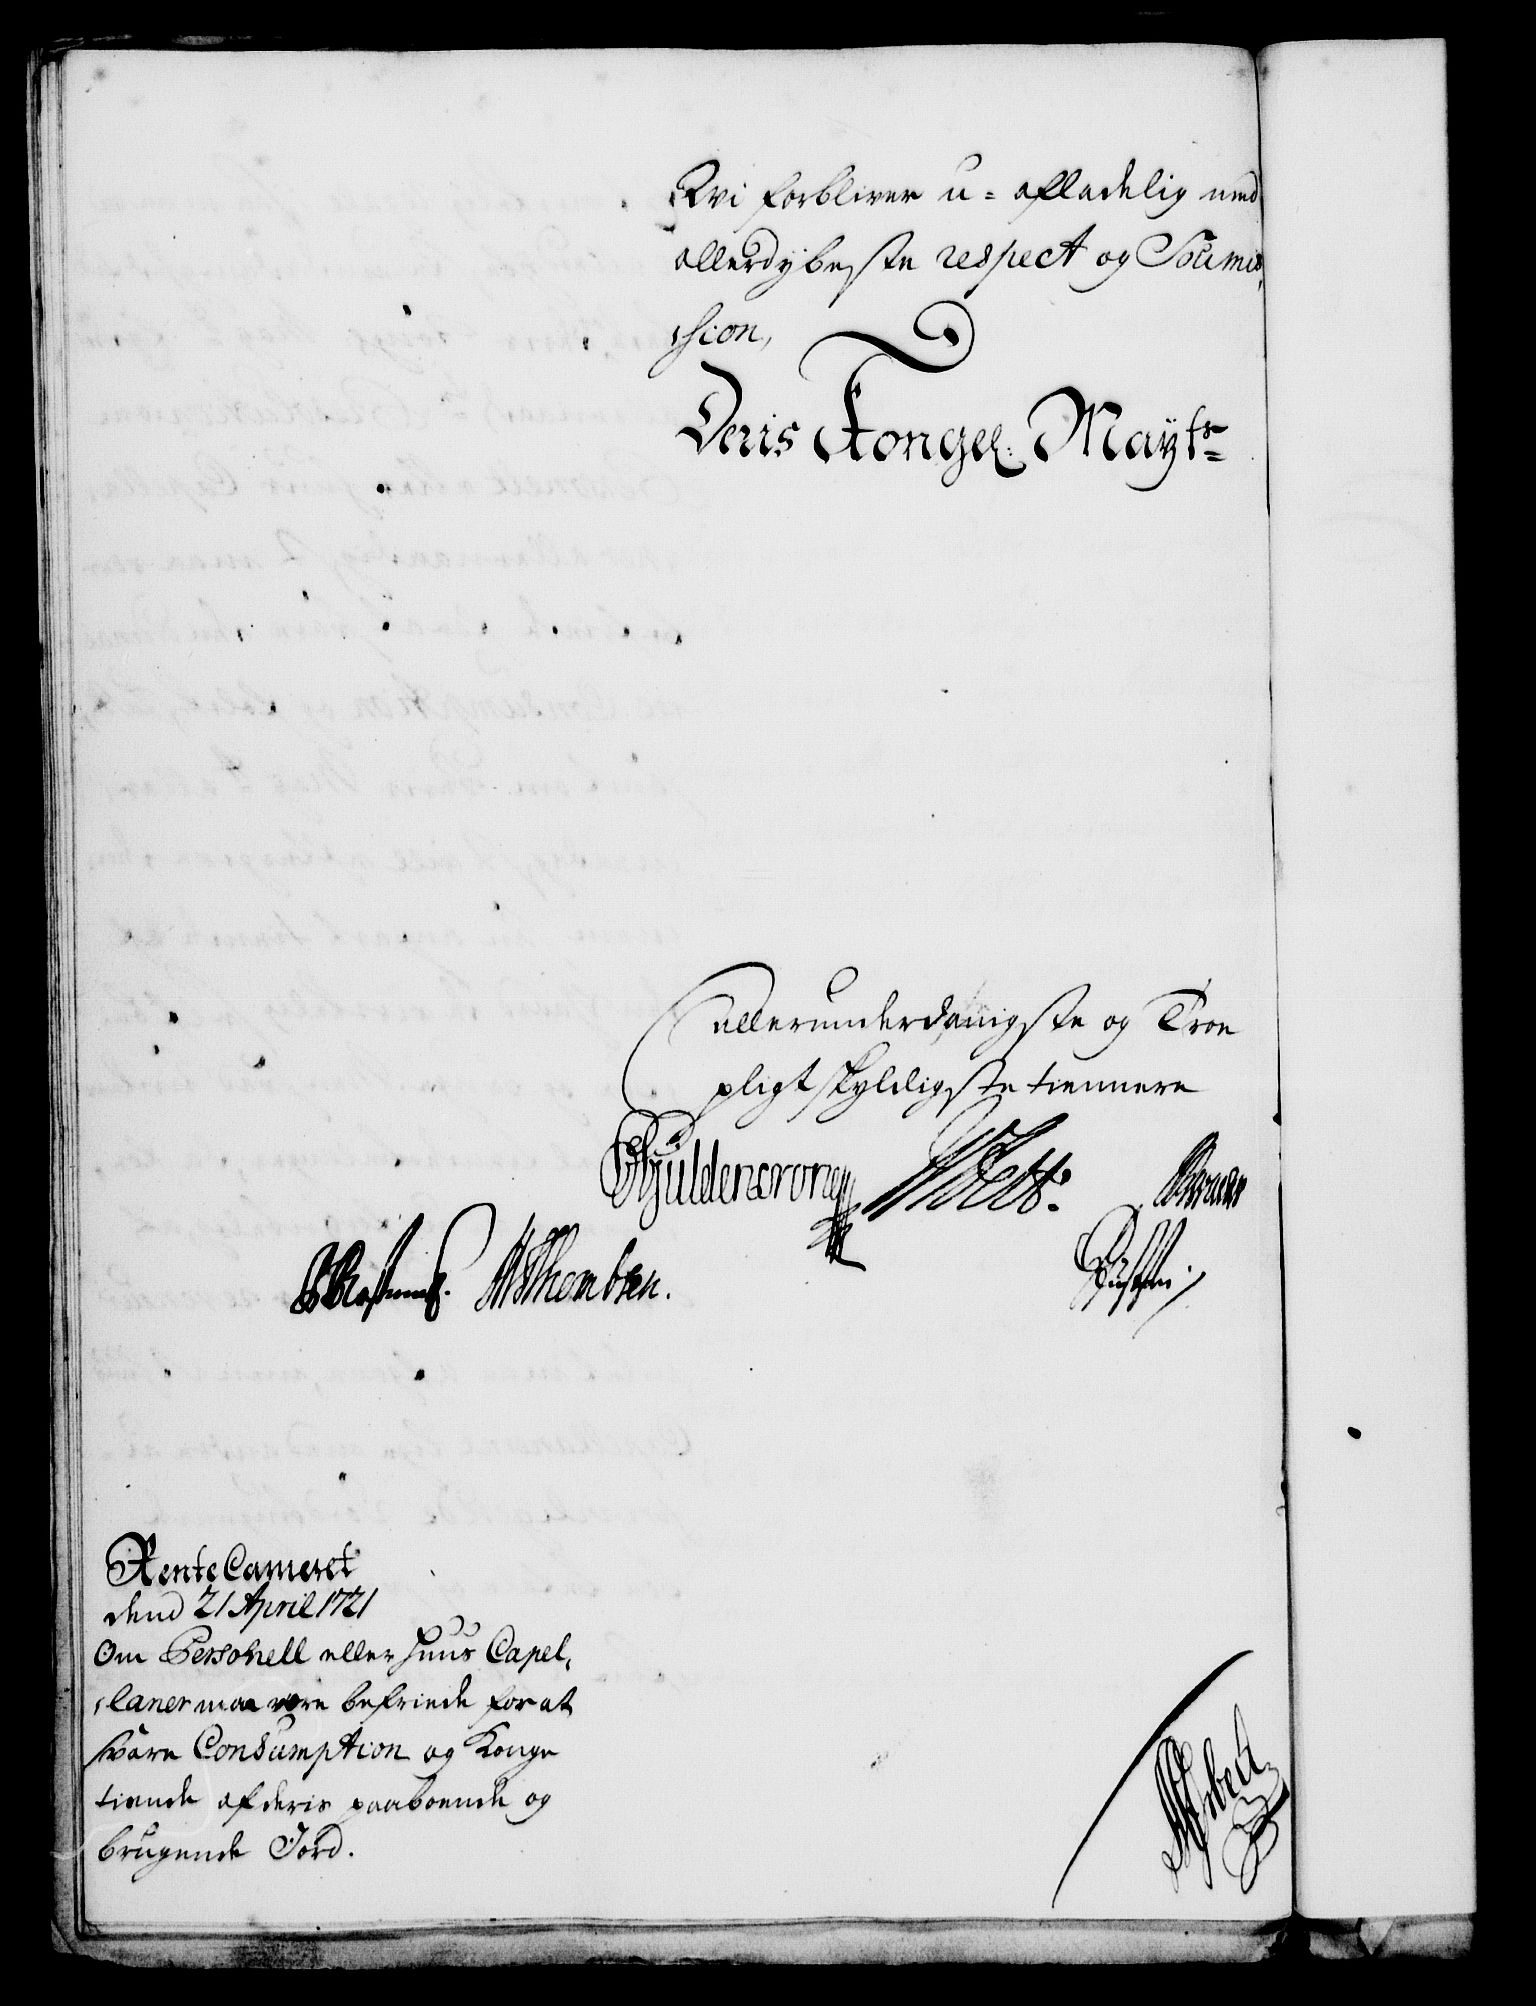 Wi forbliver u=afladelig med
allerdybeste respect og Soumis,
,sion,
Deris Kongel: Mayts
allerunderdanigste og Troe
pligtskyldigste tiennere
CGyldencrone
WThombsen.
RenteCameret
dend 21 April 1721
Om Personell eller Huus Capel,
,laner maa være befriede for at
svare Consumption og Konge
tiende af deris paaboende og
brugende Jord.